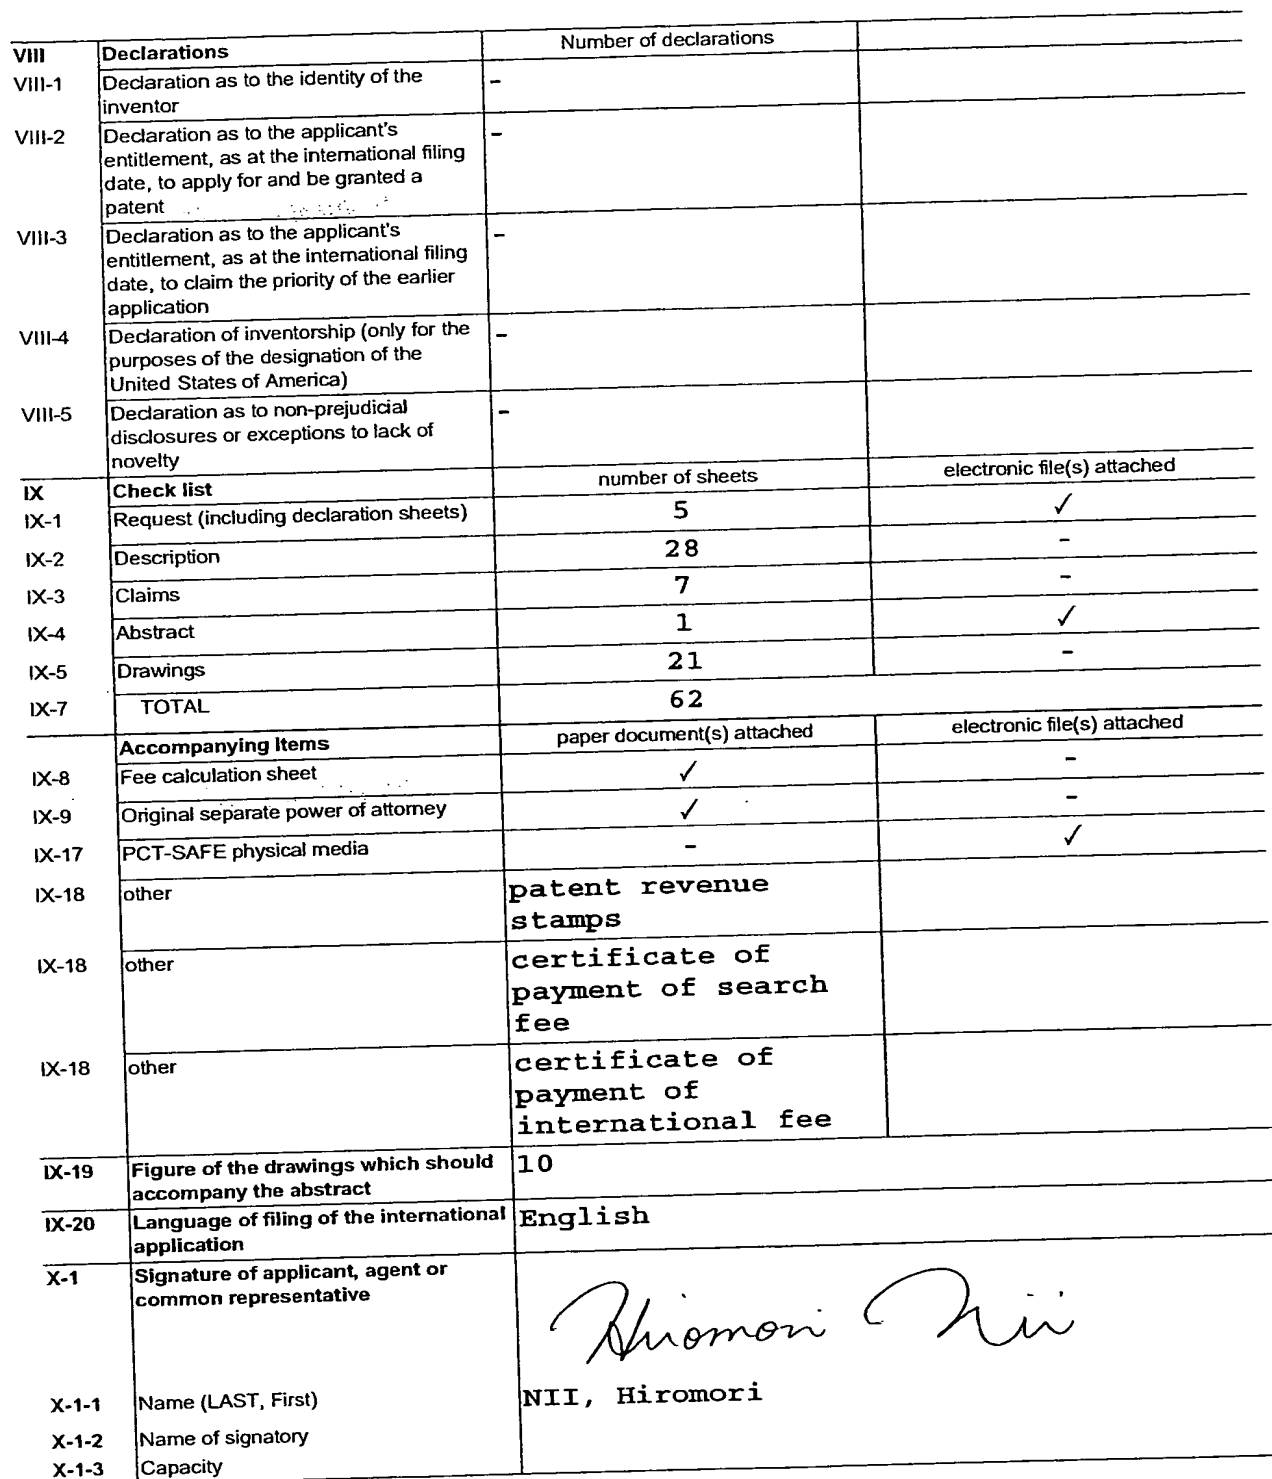 VIII Declarations Number of declarations
VIII-1 Declaration as to the identity of the -
inventor
VIII-2 Declaration as to the applicant's -
entitlement, as at the international filing
date, to apply for and be granted a
patent
VIII-3 Declaration as to the applicant's -
entitlement, as at the international filing
date, to claim the priority of the earlier
application
VIII-4 Declaration of inventorship (only for the -
purposes of the designation of the
United States of America)
VIII-5 Declaration as to non-prejudicial -
disclosures or exceptions to lack of
novelty
IX Check list number of sheets electronic file(s) attached
IX-1 Request (including declaration sheets) 5 ✓
IX-2 Description 28 -
IX-3 Claims 7 -
IX-4 Abstract 1 ✓
IX-5 Drawings 21 -
IX-7 TOTAL 62
Accompanying Items paper document(s) attached electronic file(s) attached
IX-8 Fee calculation sheet ✓ -
IX-9 Original separate power of attorney ✓ -
IX-17 PCT-SAFE physical media - ✓
IX-18 other patent revenue
stamps
IX-18 other certificate of
payment of search
fee
IX-18 other certificate of
payment of
international fee
IX-19 Figure of the drawings which should 10
accompany the abstract
IX-20 Language of filing of the international English
application
X-1 Signature of applicant, agent or
common representative
Hiromori Nii
X-1-1 Name (LAST, First) NII, Hiromori
X-1-2 Name of signatory
X-1-3 Capacity